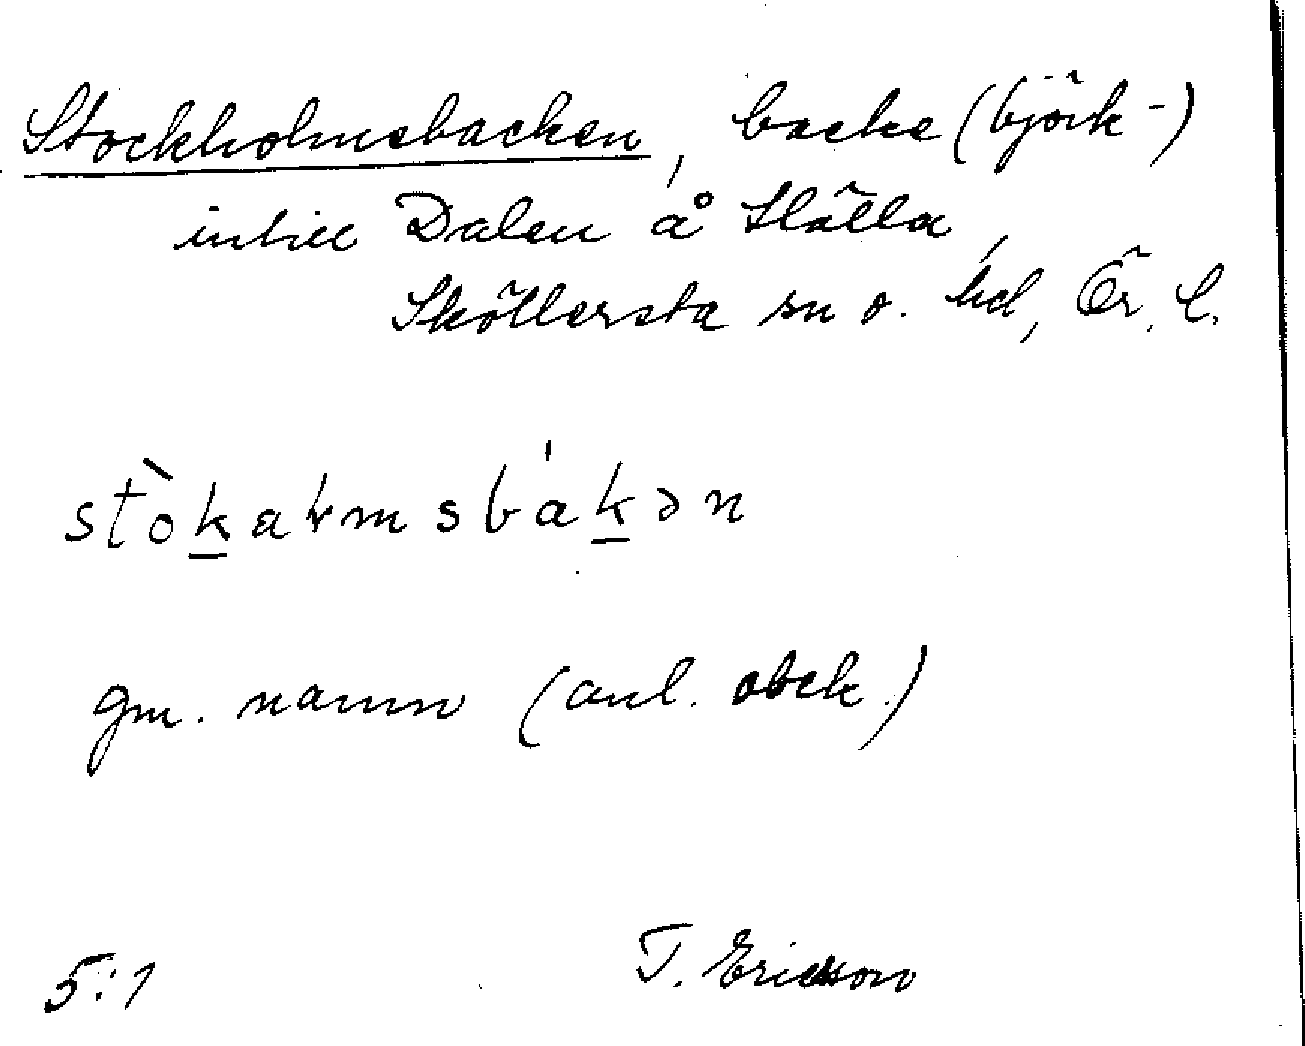 Stockholmsbacken, backe (björk-)
intill Dalen å Slälla,
Sköllersta sn o. hd, Ör. l.
stòkarmsbákən
gm. namn (anl. obek.)
5:1 T. Ericsson